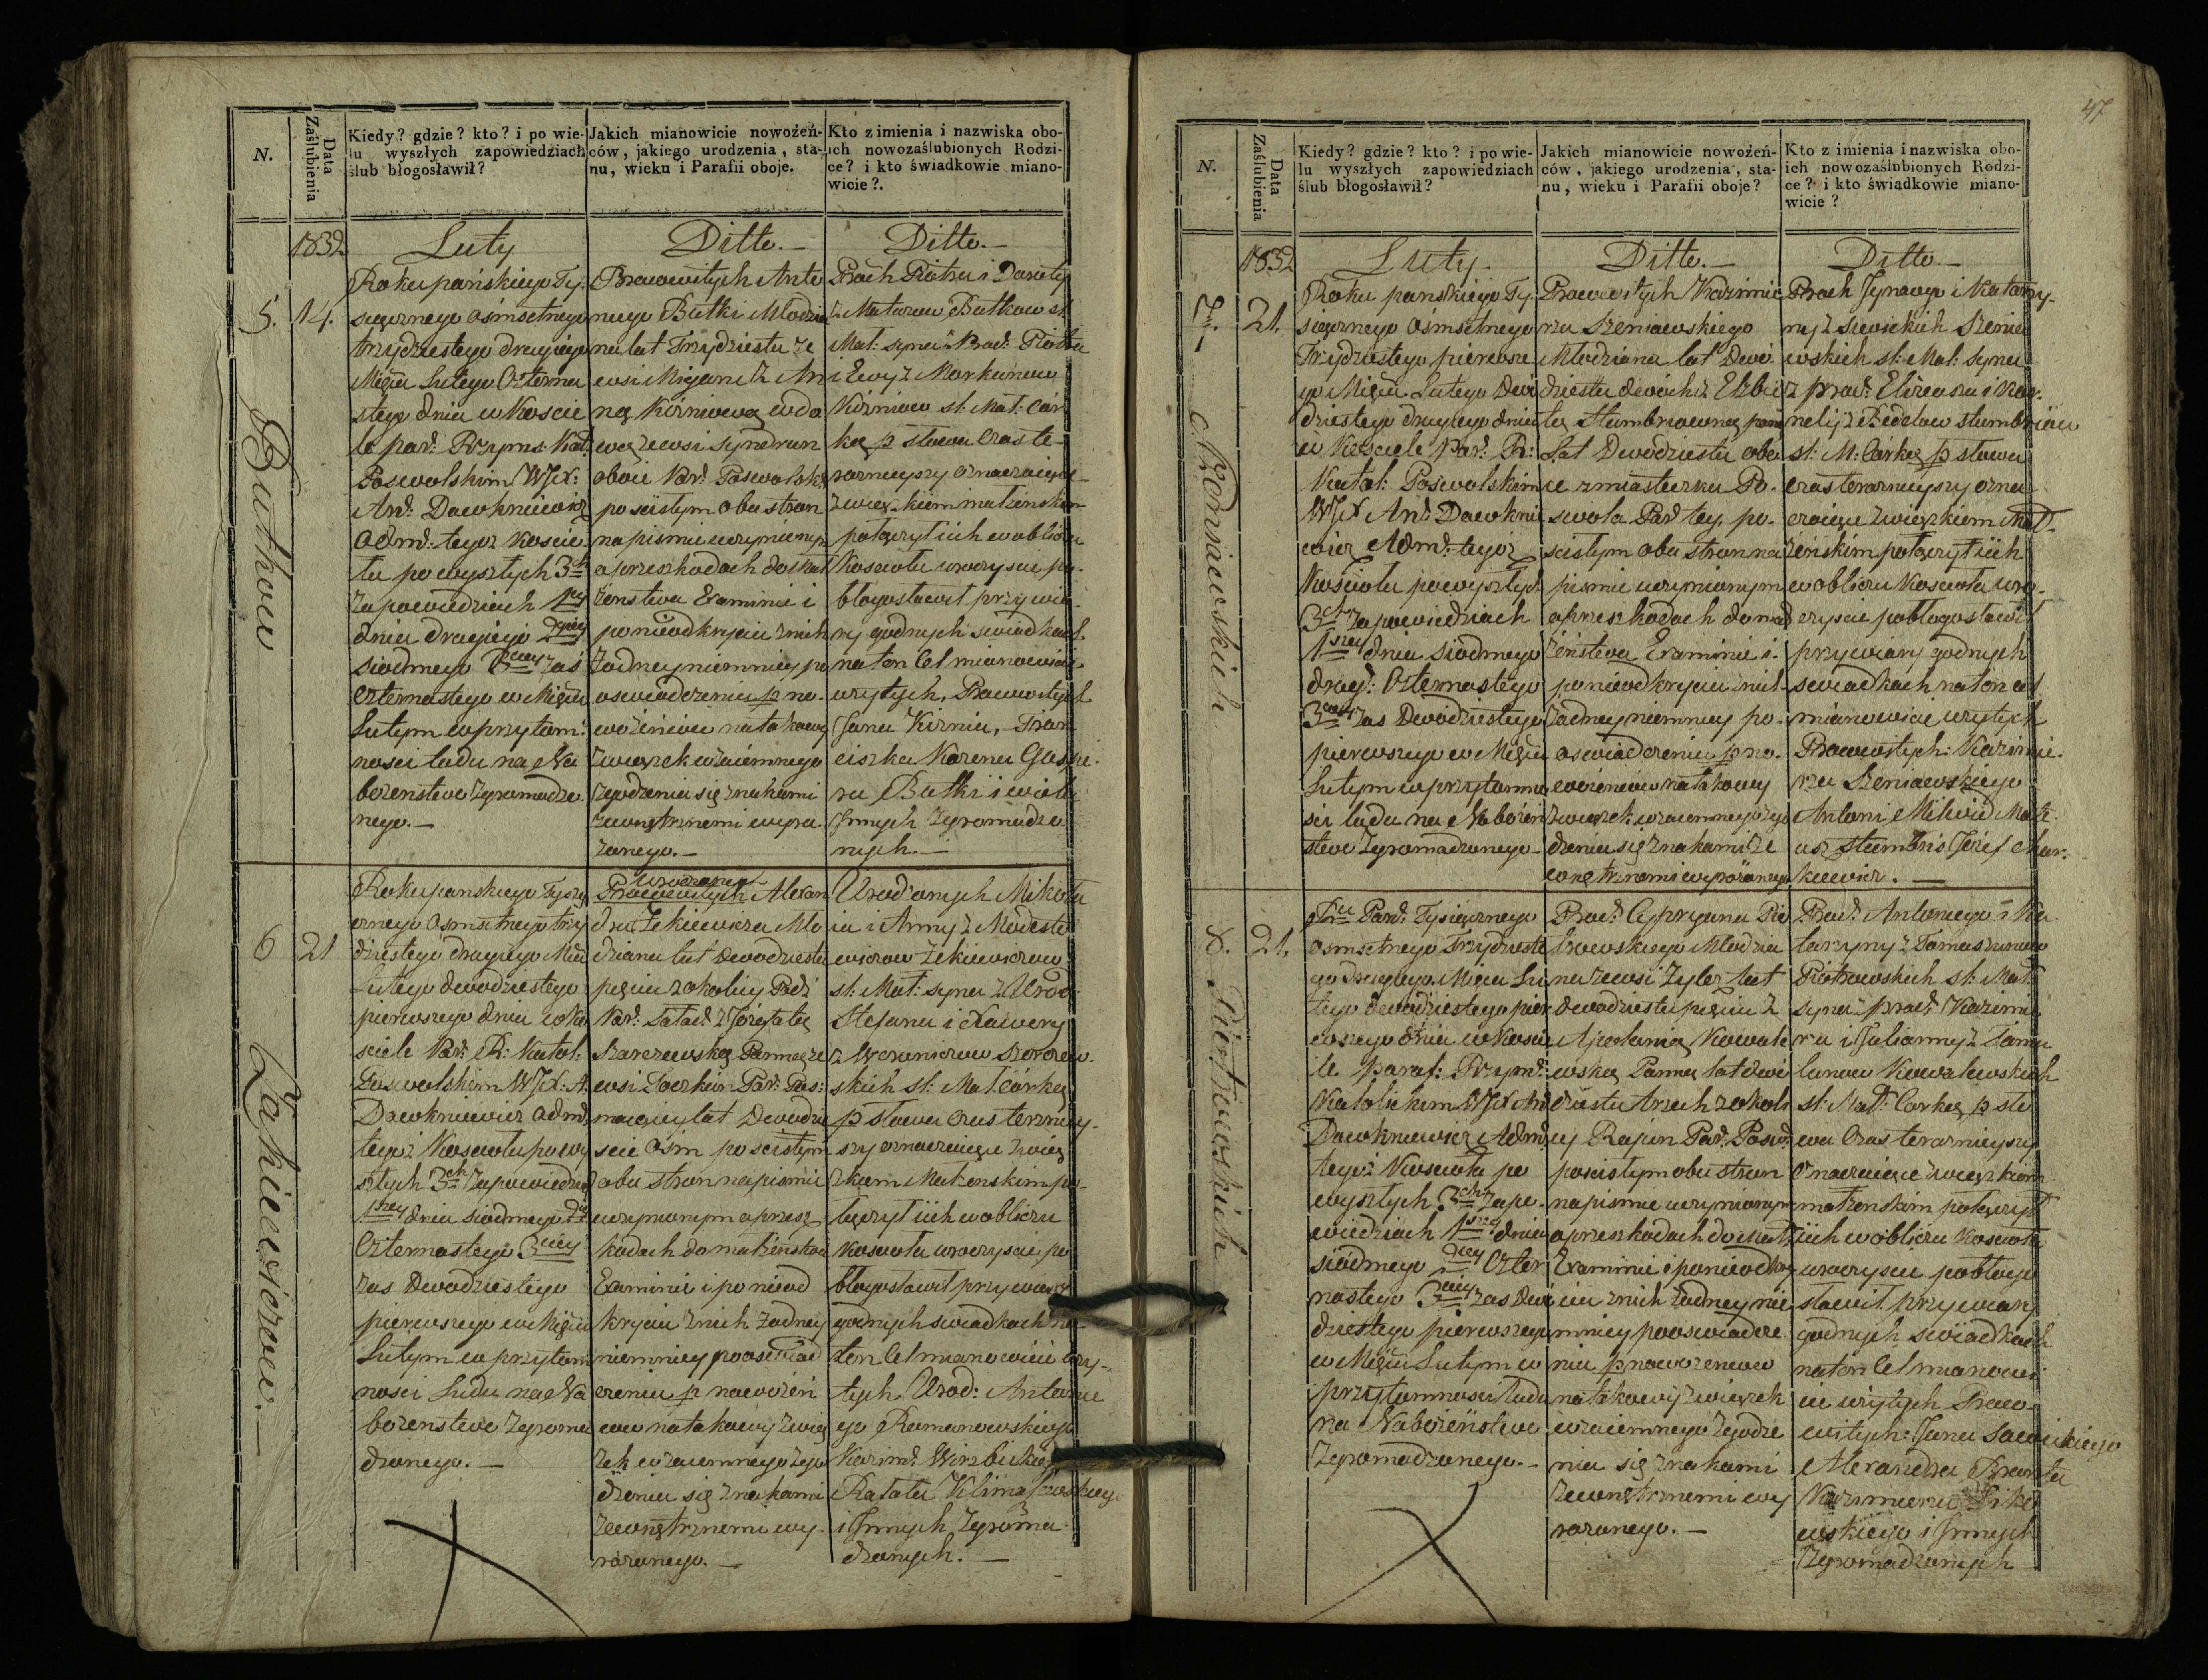 N.
Data Zaślubienia
Kiedy? gdzie? kto? i po wie-
lu wyszłych zapowiedziach
ślub błogosławił?
Jakich mianowicie nowożeń-
ców, jakiego urodzenia, sta-
nu, wieku i Parafii oboje.
Kto z imienia i nazwiska obo-
ich nowozaślubionych Rodzi-
ce? i kto świadkowie miano-
wicie?.
1832
5.
14.
Butkow
Luty
Roku pańskiego Ty-
sięcznego ośmsetnego
trzydziestego drugiego
Mięsia Lutego Czterna
stego dnia w Koscie
le par. Rzyms: Kat.
Poswolskim WJX:
And: Dawkniewicz
Adm: tegoż Koscio
ła po wyszłych 3ch
zapowiedziach 1ey
dnia drugiego 2giey
siodmego 3ciey zaś
czternastego w Mięsiu
Lutym w przytom:
nosci ludu na Na
bożenstwo zgromadzo
nego.—
Ditto.—
Prawowitych Anto
niego Butki Młodzia
na lat Trzydziestu ze
wsi Migani z An
ną Kirniową wdo
wą ze wsi Syndrun
oboie Par: Poswolskiey
po scisłym obu stron
na pismie uczynionym
o przeszkodach do Mał
żenstwa Examinie i
po nieodkryciu z nich
żadney niemniey po
oswiadczeniu p. no-
wożeńcow na takowy
związek wzaiemnego
zgodzenia się znakami
zewnętrznemi wyra-
żonego.—
Ditto.—
Prach Piotra i Doroty
z Matorow Butkow st.
Mał: syna z Praw: Piotra
i Ewy z Markunow
Kirniow st: Mał: Cór
kę p. słowa Czas te-
raznieyszy oznaczaiące
związkiem małżenskim
połączył ich w obliczu
Koscioła uroczyscie po-
błogosławił przy wia-
ry godnych swiadkach
na ten cel mianowicie
użytych, Prawowitych
Jana Kirnia, Fran
ciszka Karena Gaspe-
ra Butki i wielu
Jnnych zgromadzo
nych.—
6
21
Zakiewiczow.—
Roku pańskiego Tysią
cznego osmsetnego trzy
dziestego drugiego Msia
Lutego dwudziestego
pierwszego dnia w Ko
sciele Par: R: Katol:
Poswolskim WJX: A.
Dawkniewicz Adm:
tegoż Koscioła po wy
szłych 3ch zapowiedziach
1szey dnia siodmego 2giey
Czternastego 3ciey
zas Dwudziestego
pierwszego w Mięsiu
Lutym w przytom
nosci Ludu na Na
bożenstwo zgroma
dzonego.—
Urodzonych
Prawowitych Alexan
dra Zekiewicza Mło
dziana lat dwudziestu
pięciu z okolicy Podź
Par: Sałac: z Józefatą
Szarzewską Panną ze
wsi Zaczkun Par: Pos:
maiącey lat Dwudzie
scie Ośm po scisłym
obu stron na pismie
uczynionym o przesz
kodach do małżenstwa
Examinie i po nieod
kryciu z nich żadney
niemniey po oswiad
czeniu p. nowożeń
cow na takowy zwią
zek wzaiemnego zgo
dzenia się znakami
zewnętrznemi wy-
rażonego.—
Urodzonych Mikoła
ia i Anny z Modesto
wiczow Zekiewiczow
st: Mał: syna z Urod:
Stefana i Xawery
z Woroniczow Szorzew-
skich st: Mał: córkę
p. słowa Czas terazniey-
szy oznaczaiące zwią
zkiem Małżenskim po-
łączył ich w obliczu
Koscioła uroczyscie po
błogosławił przy wiary
godnych swiadkach na
ten cel mianowicie uży-
tych Urod: Antonie
go Romanowskiego
Kazim: Wirzbickiego
Rafała Klimaszewskiego
i Jnnych zgroma
dzonych.—
47
N.
Data Zaślubienia
Kiedy? gdzie? kto? i po wie-
lu wyszłych zapowiedziach
ślub błogosławił?
Jakich mianowicie nowożeń-
ców, jakiego urodzenia, sta-
nu, wieku i Parafii oboje?
Kto z imienia i nazwiska obo-
ich nowozaślubionych Rodzi-
ce? i kto świadkowie miano-
wicie?
1832
7.
21.
Luty.
Roku pańskiego Ty-
sięcznego ośmsetnego
Trzydziestego pierwsze
go Mięsia Lutego Dwu
dziestego drugiego dnia
w Kosciele Par: R:
Katol: Poswolskim
WJX And: Dawknie
wicz Adm: tegoż
Koscioła po wyszłych
3ch zapowiedziach
1szey dnia siodmego
drug: Czternastego
3ciey zas Dwudziestego
pierwszego w Mięsiu
Lutym w przytomno
sci ludu na Nabożeń
stwo zgromadzonego—
Ditto.—
Prawowitych Kazimie
rza Szeniawskiego
Młodziana lat Dwu
dziestu dwóch z Elżbie
tą Stumbrowną panną
Lat Dwudziestu obo
ie z miasteczka Po-
swola Par: tey, po-
scisłym obu stron na
pismie uczynionym
o przeszkodach do mał
żeństwa Examinie i
po nieodkryciu z nich
żadney niemniey po-
oswiadczeniu p. no-
wożeńcow na takowy
związek wzaiemnego zgo
dzenia się znakami ze
wnętrznemi wyrażonego
Ditto.—
Prach Jgnacego i Katarzy-
ny z Siwickich Szenia
wskich st: Mał: syna
z praw: Elizeusza i Kor-
nelij z Bedelow Stumbriow
st: M: Córkę p. słowa
czas teraznieyszy ozna
czaiące związkiem Mał-
żeńskim połączył ich
w obliczu Koscioła uro-
czyscie pobłogosławił
przy wiary godnych
swiadkach na ten cel
mianowicie użytych
Prawowitych: Kazimie-
rza Szeniawskiego
Antoni Milwid Mate-
usz Stumbris Józef Mar-
kiewicz.—
8.
21.
Piotrowskich
Ru Pań: Tysięcznego
osmsetnego Trzydzieste
go drugiego Mięsia Lu
tego dwudziestego pier
wszego dnia w Koscie
le Paraf: Rzyms:
Katolickim WJX And
Dawkniewicz Adm:
tegoż Koscioła po
wyszłych 3ch zapo-
wiedziach 1szey dnia
siódmego 2giey Czter
nastego 3ciey zas dwu
dziestego pierwszego
w Mięsiu Lutym w
przytomnosci ludu
na Nabożeństwo
zgromadzonego.—
Praw: Cypryana Pio
trowskiego Młodzia
na ze wsi Zyler lat
dwudziestu pięciu z
Apolonią Kowale
wską Panną lat dwu
dziestu trzech z okoli
cy Rajun Par: Posw:
po scisłym obu stron
na pismie uczynionym
o przeszkodach do Mał
Examinie i po nieodkry
ciu z nich żadney nie
mniey po oswiadcze
niu p. nowożencow
na takowy związek
wzaiemnego zgodze
nia się znakami
zewnętrznemi wy
rażonego.—
Praw: Antoniego i Ka
tarzyny z Tomaszunow
Piotrowskich st: Mał:
syna z praw: Kazimie
rza i Julianny z Tamu
lunow Kowalewskich
st: Mał: Corkę p. sło
wa Czas teraznieyszy
oznaczaiące związkiem
małżenskim połączył
ich w obliczu Koscioła
uroczyscie pobłogo
sławił przy wiary
godnych swiadkach
na ten Cel mianowi
cie użytych Prawo-
witych: Jana Sawickiego
Alexandra
Kazimierza
wskiego i Jnnych
zgromadzonych